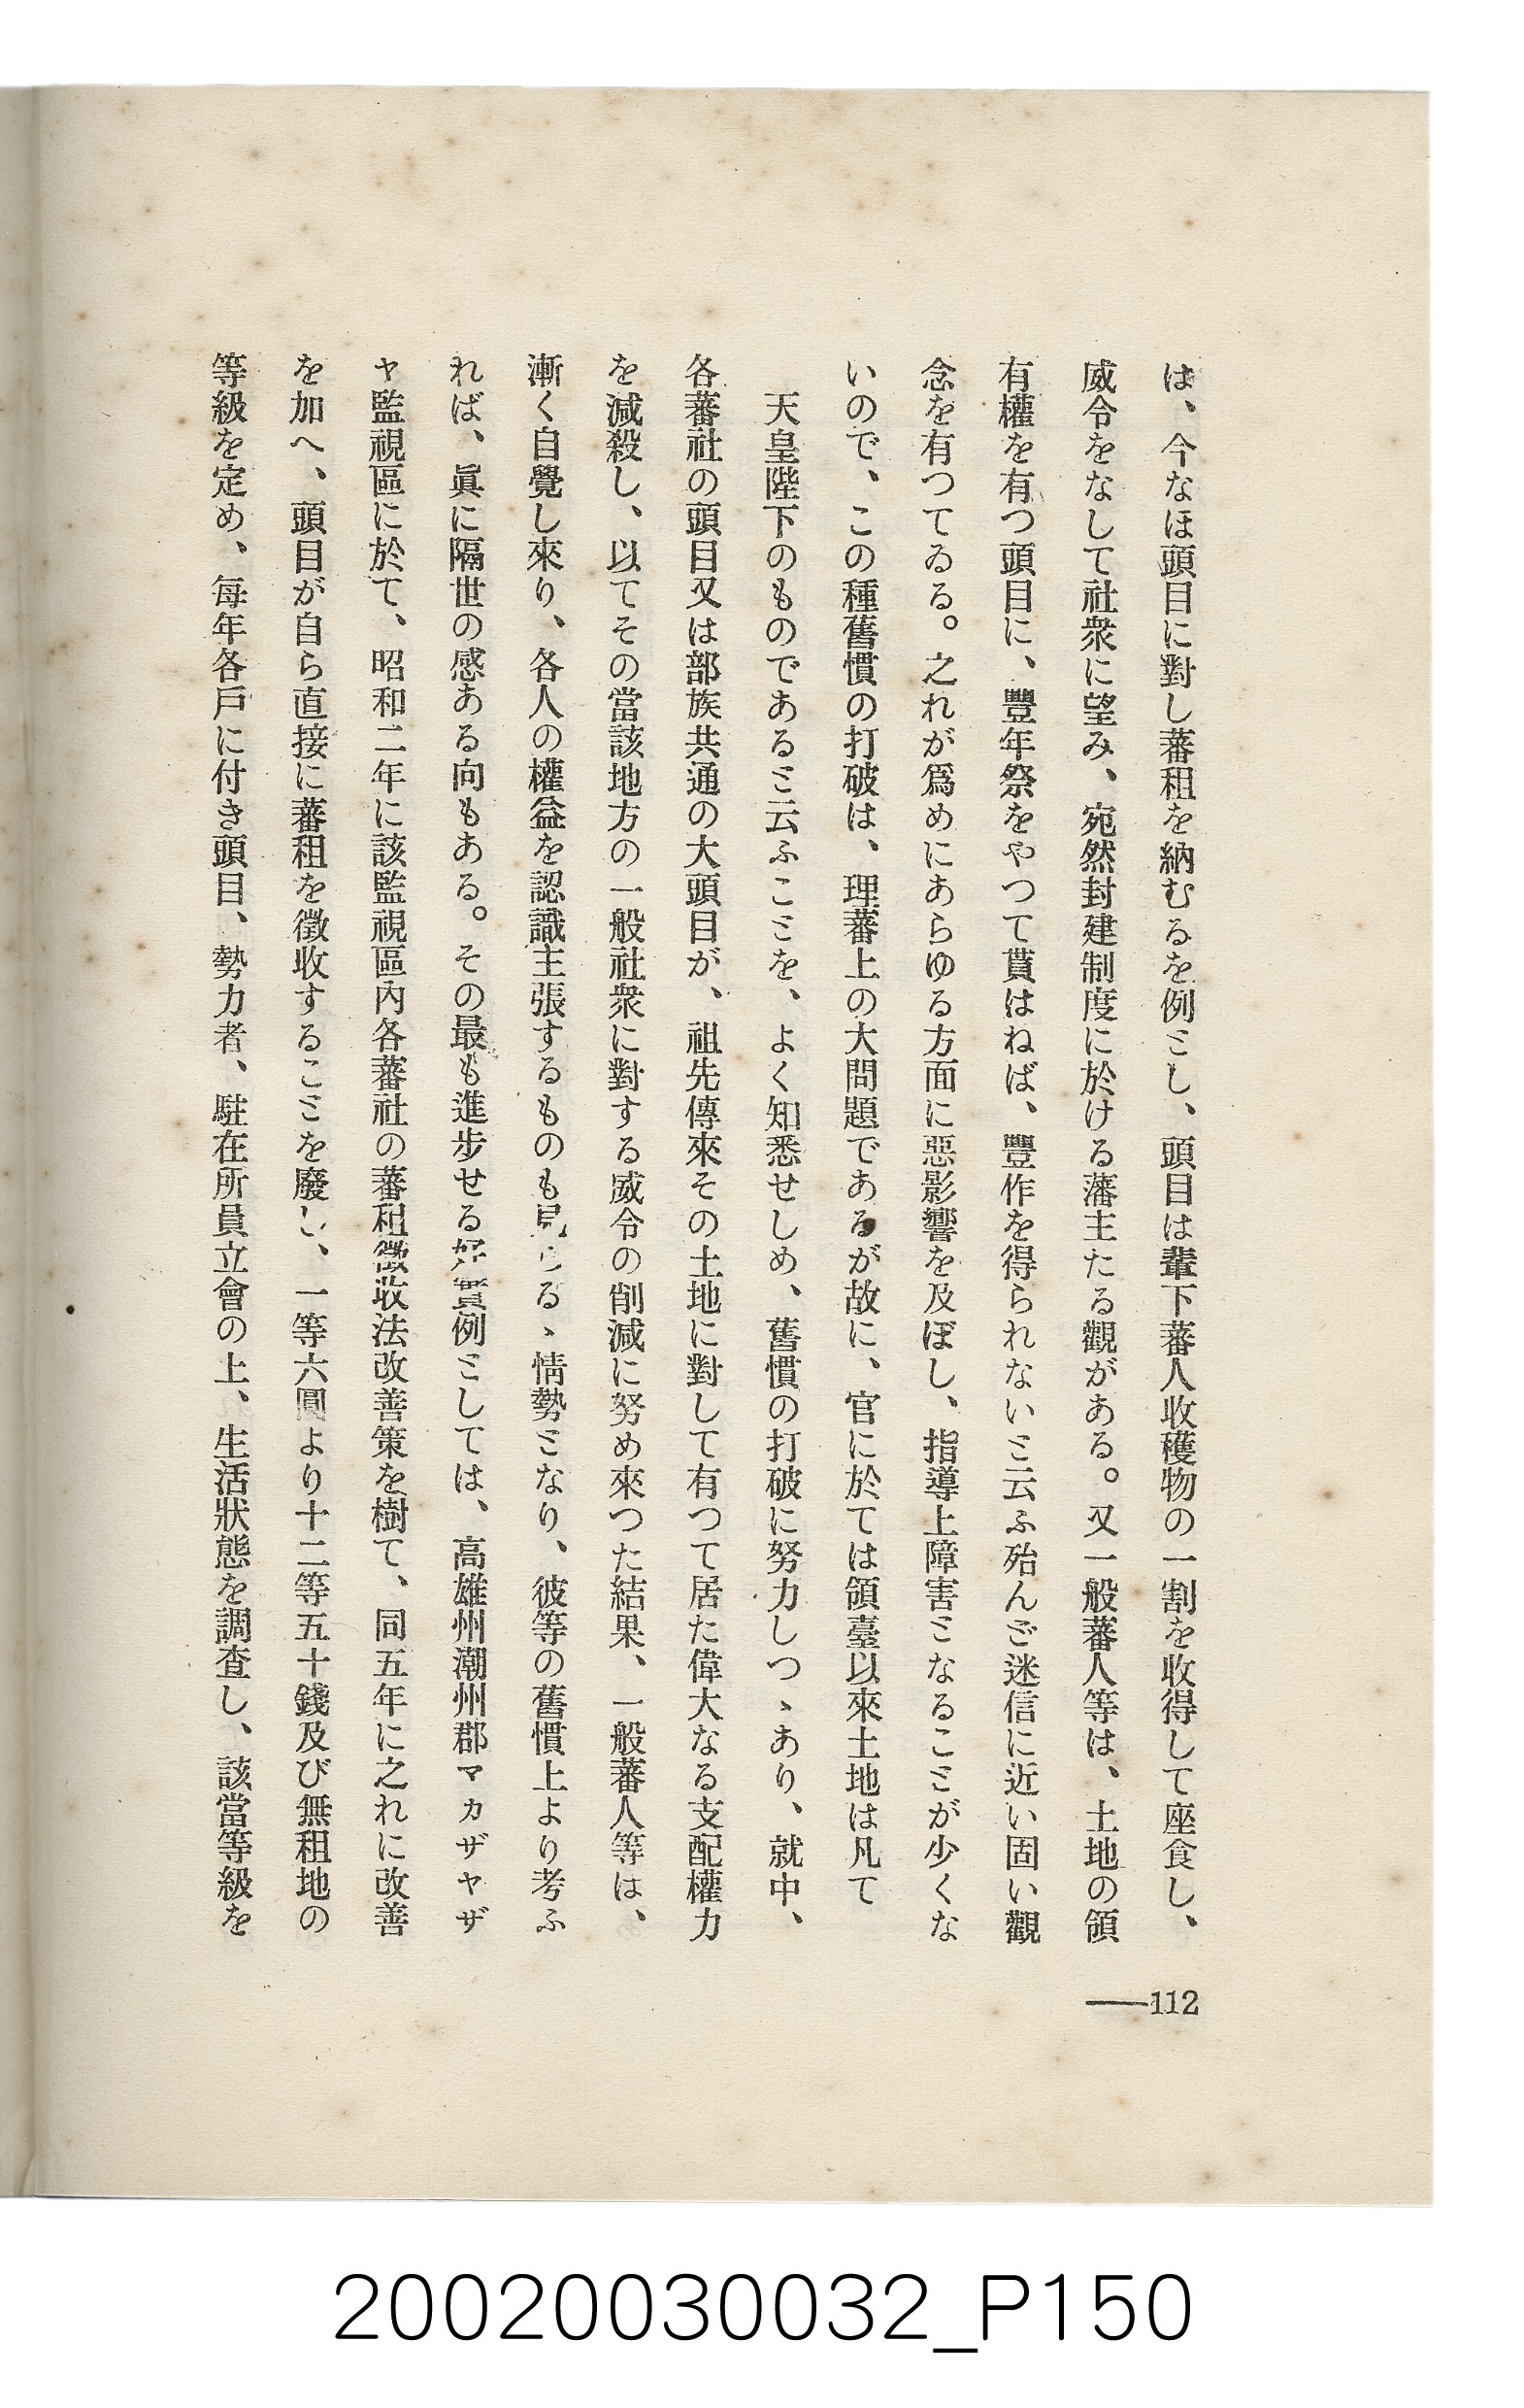 は、今なほ頭目に對し蕃租を納むるを例ミし、頭目は輩下蕃人收穫物の一割を收得して座食し、
威令をなして社衆に望み、宛然封建制度に於ける藩主たる觀がある。又一般蕃人等は、土地の領
有權を有つ頭目に、豐年祭をやつて貰はねば、豐作を得られないミ云ふ殆んご迷信に近い固い觀
念を有つてゐる。之れが爲めにあらゆる方面に惡影響を及ぼし、指導上障害ミなるこミが少くな
いので、この種舊慣の打破は、理蕃上の大問題であるが故に、官に於ては領臺以來土地は凡て
天皇陛下のものであるミ云ふこミを、よく知悉せしめ、舊慣の打破に努力しつゝあり、就中、
各蕃社の頭目又は部族共通の大頭目が、祖先傳來その土地に對して有つて居た偉大なる支配權力
を減殺し、以てその當該地方の一般社衆に對する威令の削減に努め來つた結果、一般蕃人等は、
漸く自覺し來り、各人の權益を認識主張するものも見らるゝ情勢ミなり、彼等の舊慣上より考ふ
れば、眞に隔世の感ある向もある。その最も進步せる好實例ミしては、高雄州潮州郡マカザヤザ
ヤ監視區に於て、昭和二年に該監視區內各蕃社の蕃租徵收法改善策を樹て、同五年に之れに改善
を加へ、頭目が自ら直接に蕃租を徵收するこミを廢し、一等六圓より十二等五十錢及び無租地の
等級を定め、每年各戶に付き頭目、勢力者、駐在所員立會の上、生活狀態を調查し、該當等級を
——112
20020030032_P150